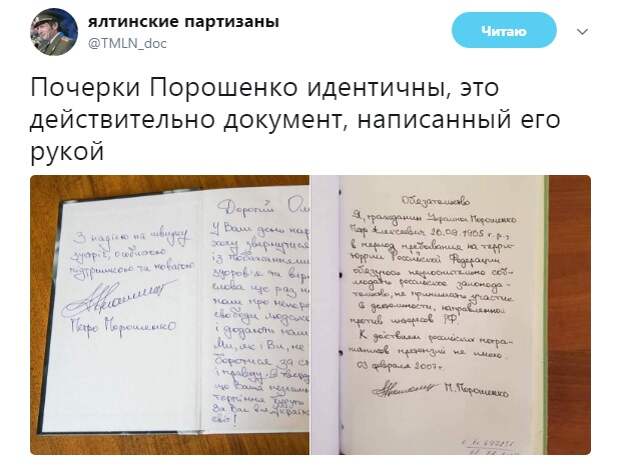 ялтинские партизаны
@TMLN_doc
Читаю
Почерки Порошенко идентичны, это
действительно документ, написанный его
рукой
З надією на швидку
зустріч, особистою
підтримкою та повагою
Петро Порошенко
Дорогий Ол
У Ваш день нар
хочу звернутися
із побажаннями
здоров'я та вір
слова що раз
нам про непоко
свободи людсько
і додають нам
Ми, як і Ви, не
боротися за св
і правду. Я
що Ваша незлам
терпіння будуть
За Вас вся Україна
світ!
Обязательство
Я, гражданин Украины Порошенко
Пётр Алексеевич 26.09.1965 г.р.,
в период пребывания на терри-
тории Российской Федерации
обязуюсь неукоснительно соб-
людать российское законода-
тельство, не принимать участие
в деятельности, направленной
против интересов РФ.
К действиям российских погра-
ничников претензий не имею.
03 февраля 2007г.
П. Порошенко